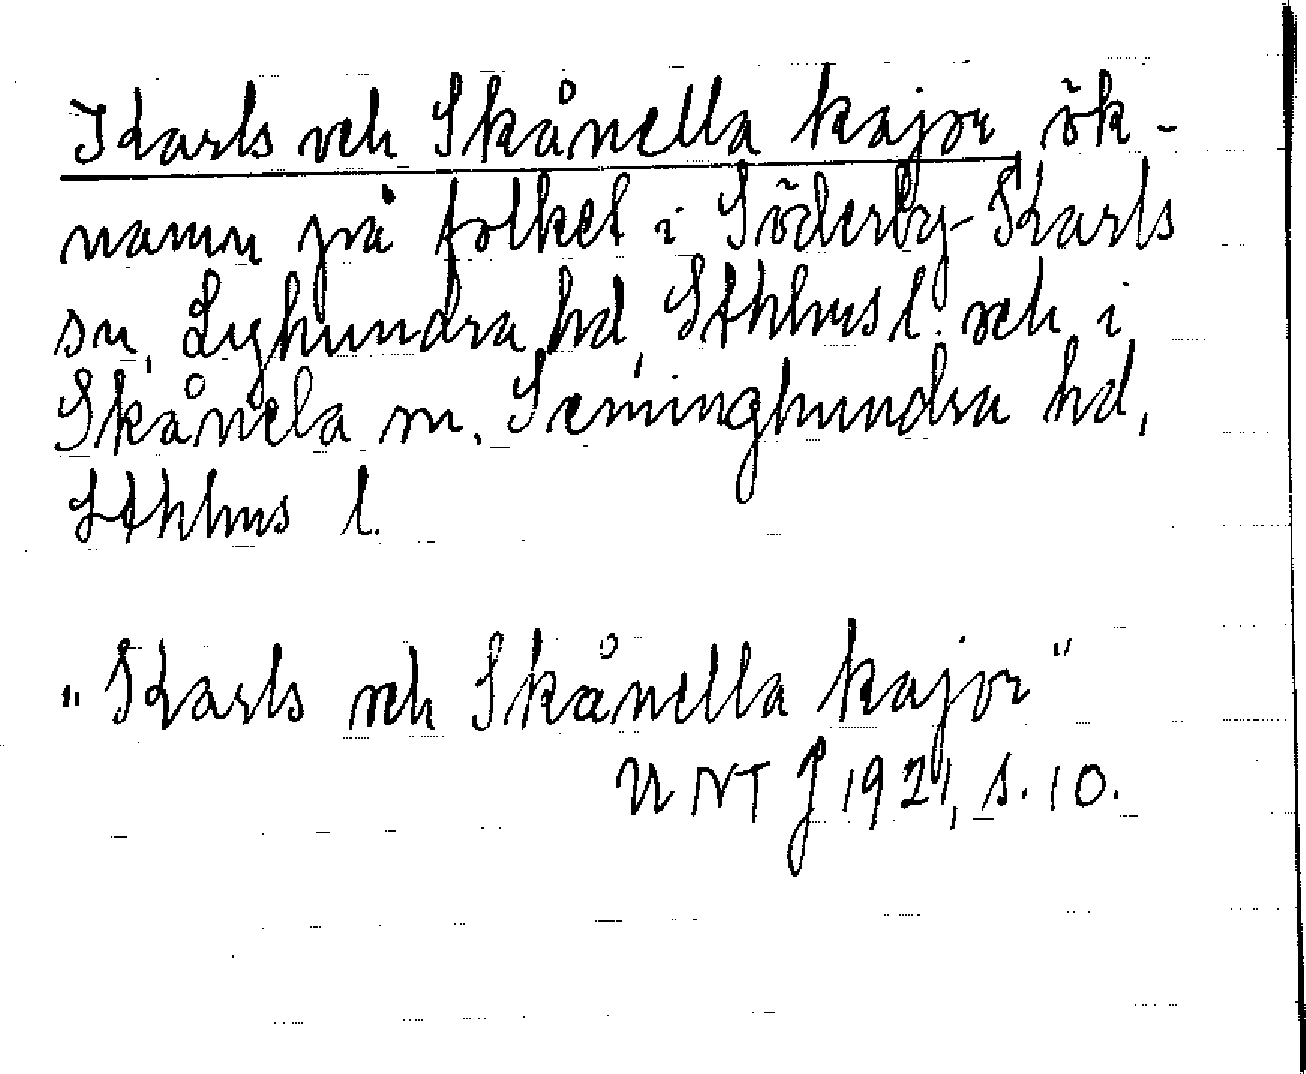 Karls och Skånella kajor, ök-
namn på folket i Söderby-Karls
sn, Lyhundra hd, Sthlms l. och i
Skånela sn. Seminghundra hd,
Sthlms l.
"Karls och Skånella kajor"
UNT J 1921, s. 10.